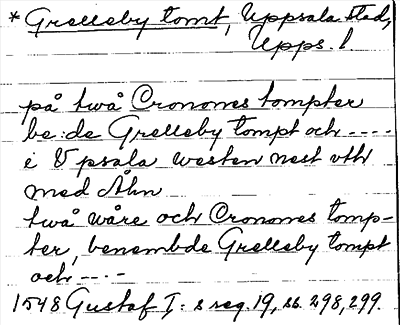 * Grelleby tomt, Uppsala stad,
Upps. l.
på twå Cronones tompter
be:de Grelleby tompt och ----
i Vpsala westen nest vthr
med Åhn
twå wåre och Cronones tomp-
ter, benembde Grelleby tompt
och ----
1548 Gustaf I: s reg. 19, ss. 298, 299.